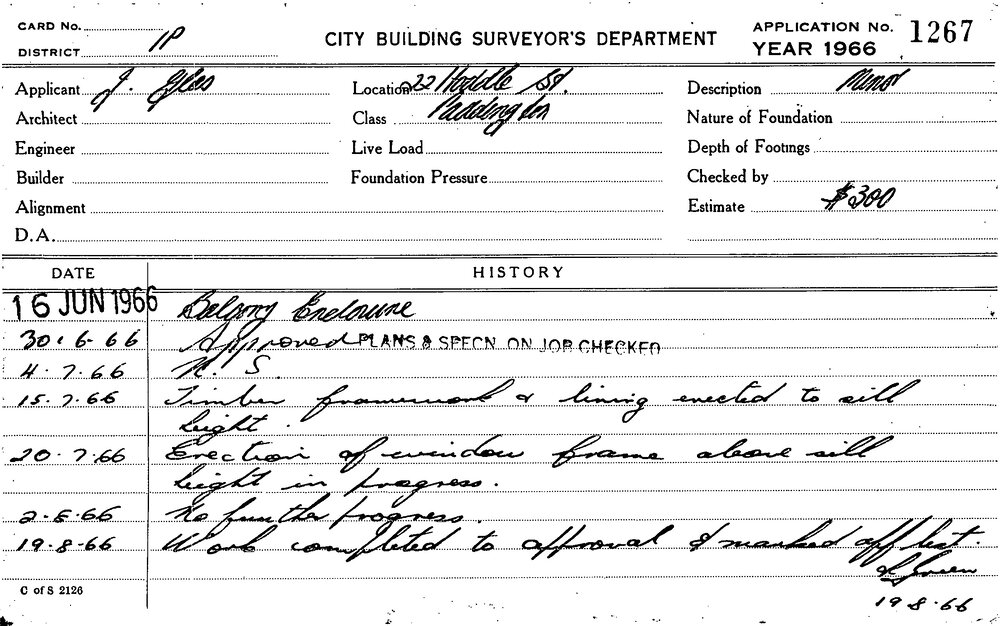 CARD No.
DISTRICT 1P
CITY BUILDING SURVEYOR'S DEPARTMENT
APPLICATION No. 1267
YEAR 1966
Applicant J.
Location 22 Hoddle St.
Description Minor
Architect
Class Paddington
Nature of Foundation
Engineer
Live Load
Depth of Footings
Builder
Foundation Pressure
Checked by
Alignment
Estimate $300
D.A.
DATE
HISTORY
16 JUN 1966 Balcony Enclosure
30·6·66 Approved PLANS & SPECN. ON JOB CHECKED
4·7·66 N. S.
15·7·66 Timber framework & lining erected to sill
height.
20·7·66 Erection of window frame above sill
height in progress.
2·8·66 No further progress.
19·8·66 Work completed to approval & marked off list.
19·8·66
C of S 2126